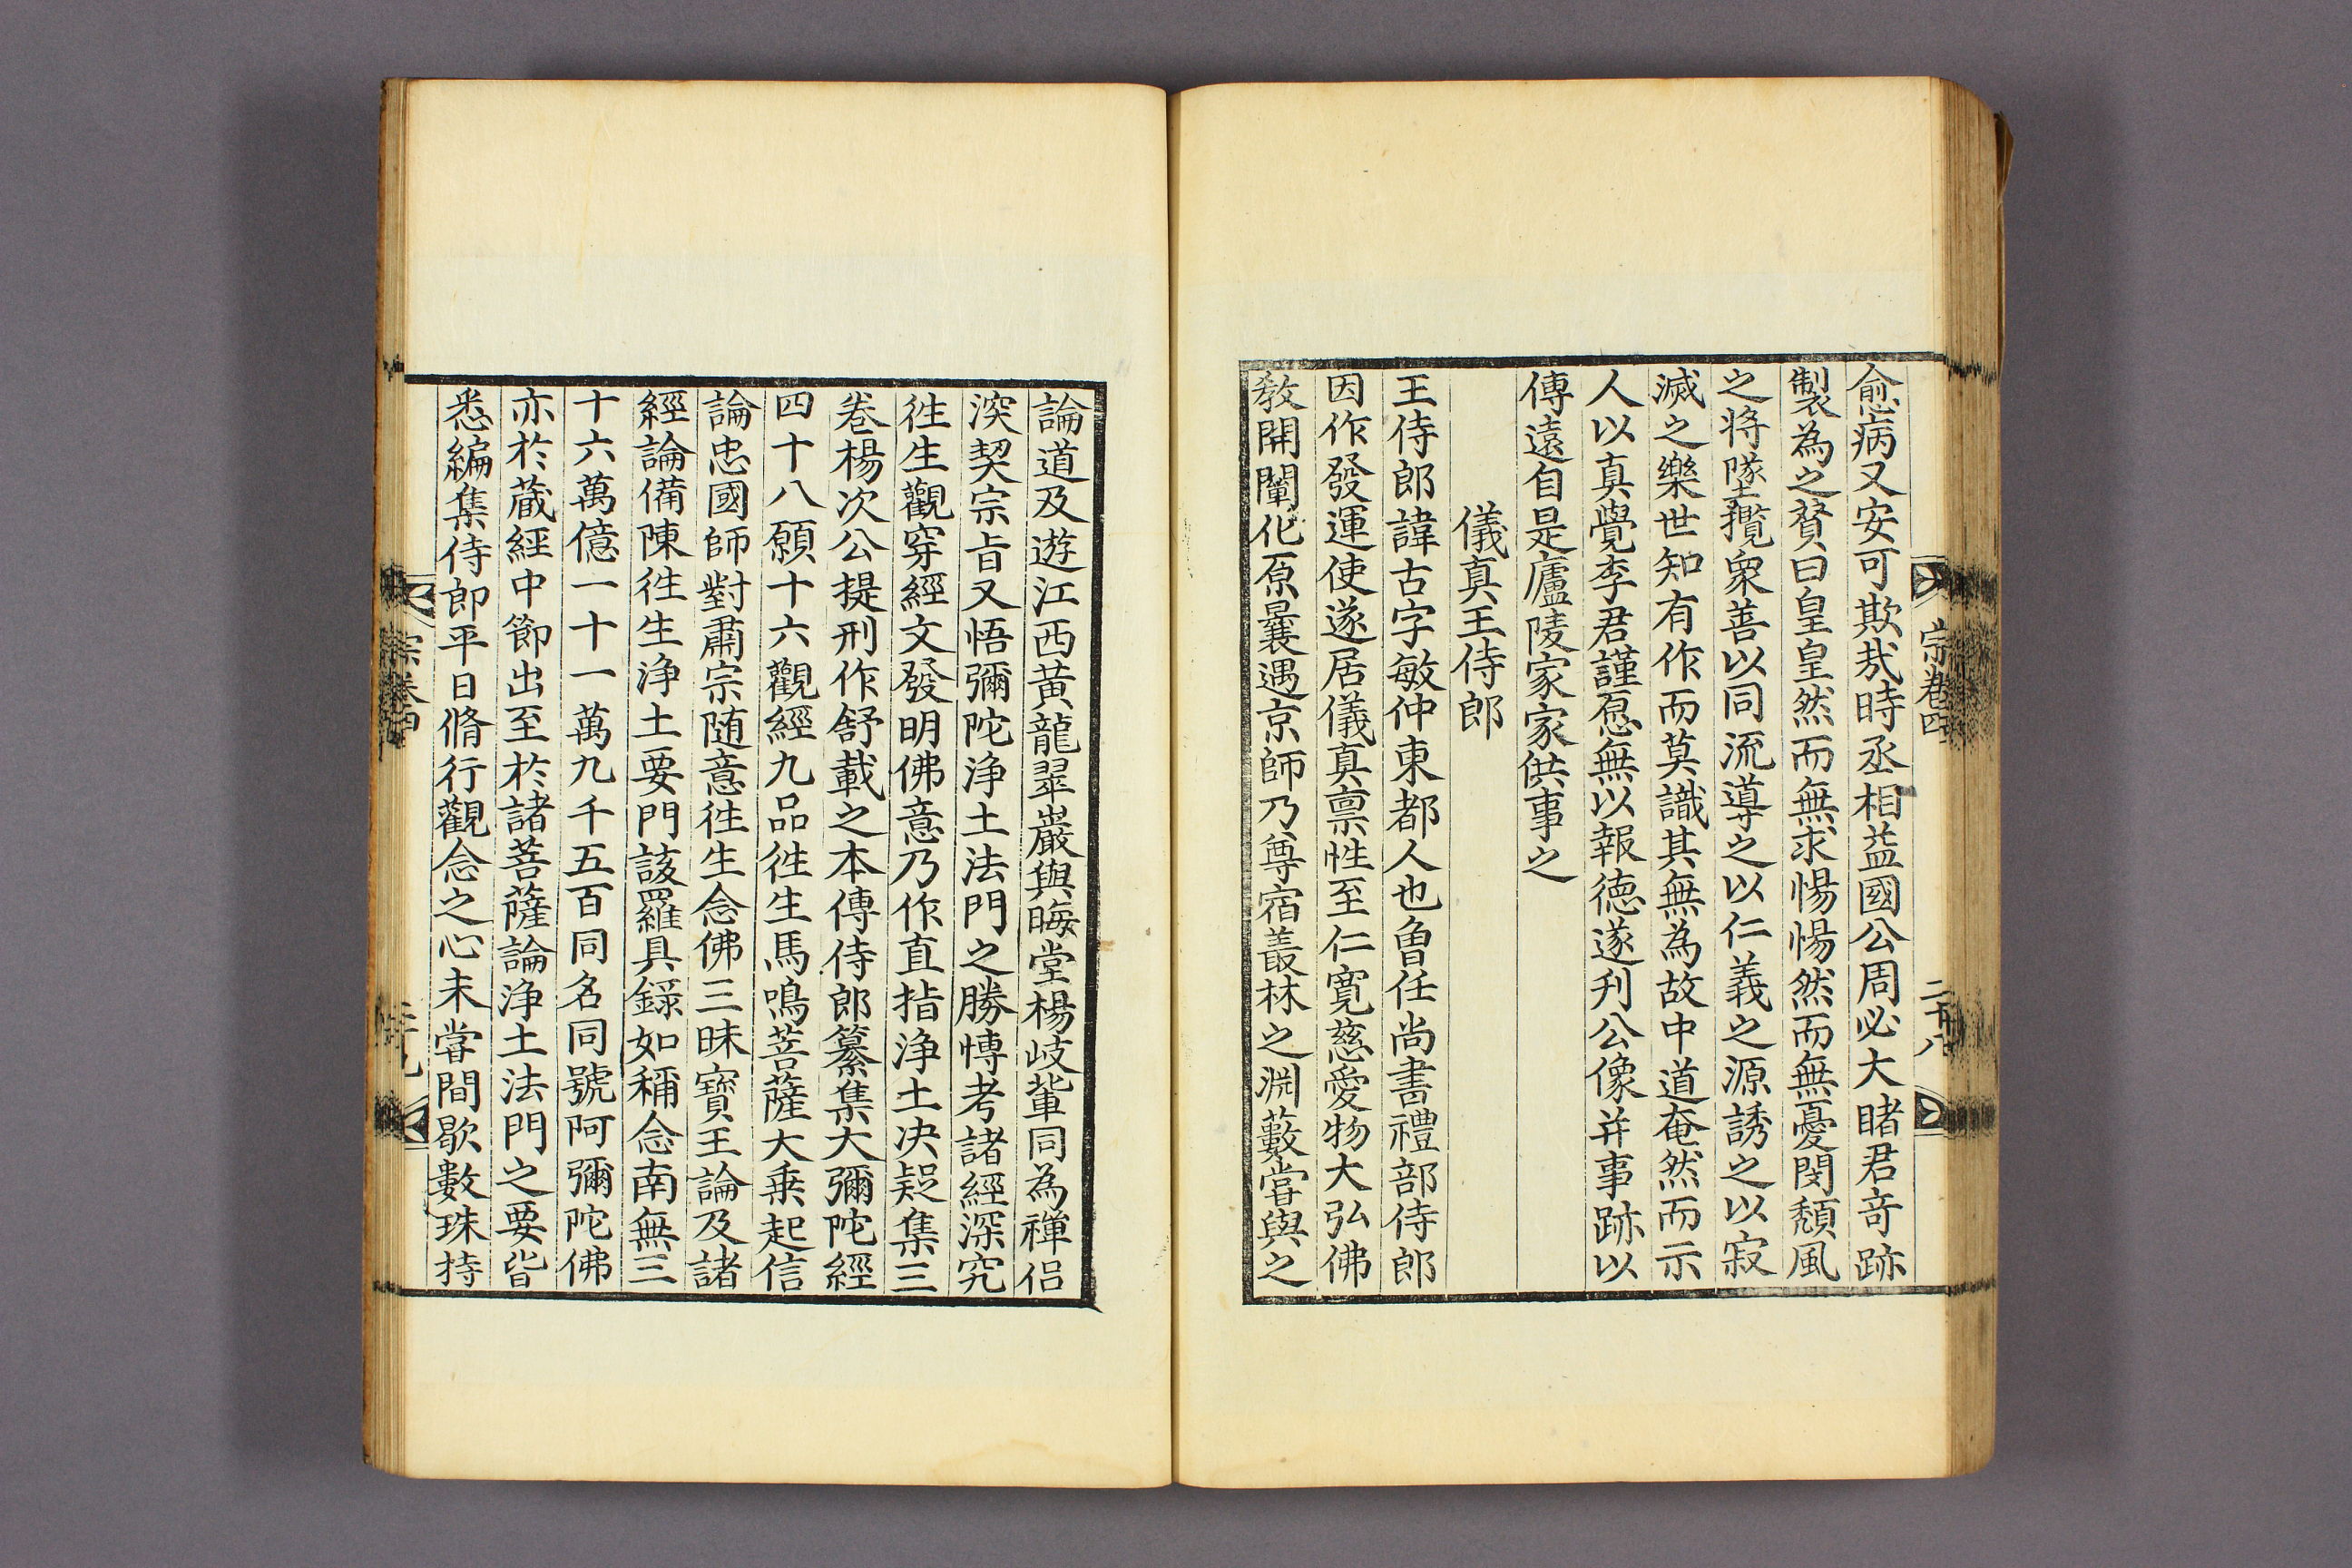 宗卷四
二十八
愈病又安可欺㢤時丞相益國公周必大睹君竒跡
製為之賛曰皇皇然而無求惕惕然而無憂閔頹風
之将墜攬衆善以同流導之以仁義之源誘之以寂
滅之樂世知有作而莫識其無為故中道奄然而示
人以真覺李君謹愿無以報德遂刋公像并事跡以
傳遠自是廬陵家家供事之
儀真王侍郎
王侍郎諱古字敏仲東都人也曽任尚書禮部侍郎
因作發運使遂居儀真禀性至仁寛慈愛物大弘佛
教開闡化原曩遇京師乃尊宿叢林之淵藪嘗與之
論道及遊江西黄龍翠巖與晦堂楊岐軰同為禪侣
深契宗旨又悟彌陀淨土法門之勝愽考諸經深究
徃生觀穿經文發明佛意乃作直指淨土决疑集三
卷楊次公提刑作舒載之本傳侍郎纂集大彌陀經
四十八願十六觀經九品徃生馬鳴菩薩大乗起信
論忠國師對肅宗随意徃生念佛三昧寳王論及諸
經論備陳徃生淨土要門該羅具録如稱念南無三
十六萬億一十一萬九千五百同名同號阿彌陀佛
亦於蔵經中節出至於諸菩薩論淨土法門之要皆
悉編集侍郎平日脩行觀念之心未嘗間歇數珠持
宗卷四